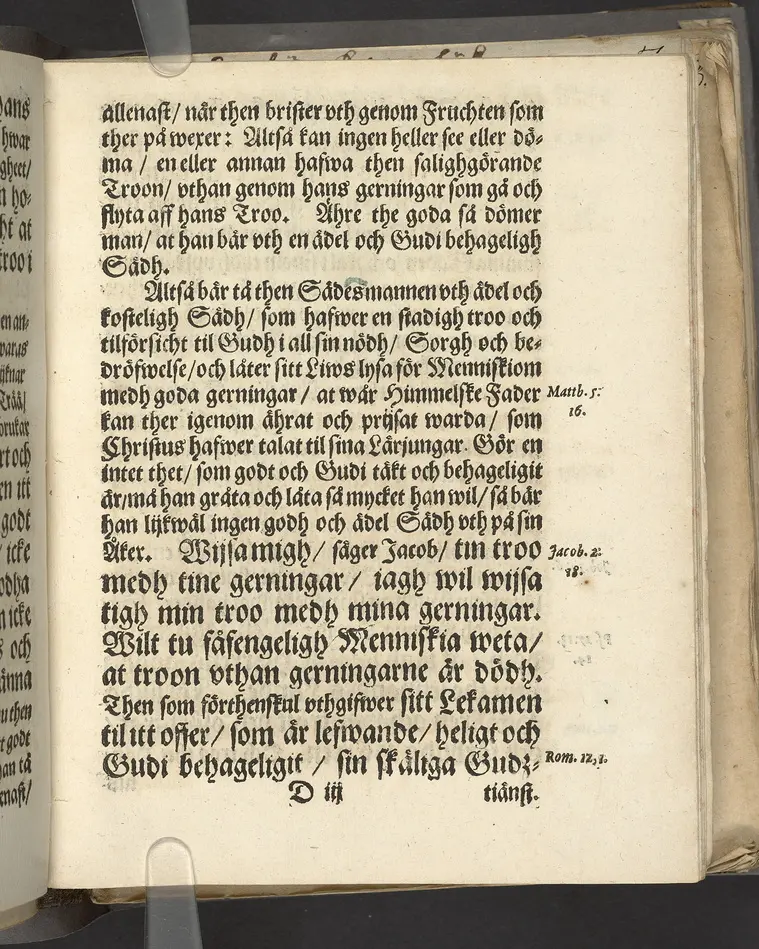 allenast/ når then brister vth genom Fruchten som
ther på wexer: Altså kan ingen heller see eller dö-
ma / en eller annan hafwa then salighgörande
Troon/ vthan genom hans gerningar som gå och
flyta aff hans Troo. Ähre the goda så dömer
man/ at han bär vth en ädel och Gudi behageligh
Sädh.
Altså bär tå then Sädesmannen vth ädel och
kosteligh Sädh/ som hafwer en stadigh troo och
tilförsicht til Gudh i all sin nödh/ Sorgh och be-
dröfwelse/och låter sitt Liws lysa för Menniskiom
medh goda gerningar/ at wår Himmelske Fader
kan ther igenom ährat och prijsat warda/ som
Christus hafwer talat til sina Lärjungar. Gör en
intet thet/ som godt och Gudi täkt och behageligit
är/må han gråta och låta så mycket han wil/ så bär
han lijkwäl ingen godh och ädel Sädh vth på sin
Åker. Wijsa migh/ säger Jacob/ tin troo
medh tine gerningar/ iagh wil wijsa
tigh min troo medh mina gerningar.
Wilt tu fåfengeligh Menniskia weta/
at troon vthan gerningarne är dödh.
Then som förthenskul vthgifwer sitt Lekamen
til itt offer/ som är lefwande/ heligt och
Gudi behageligit / sin skäliga Gudz-
D iij tiänst.
Matth. 5:
16.
Jacob. 2:
18.
Rom. 12, 1.
ans
hwar
gheet/
n ho-
ht at
troo i
en an-
waras
Trää/
brukar
rt och
en itt
godt
icke
odha
n icke
s och
änna
u then
t godt
an tå
enast/